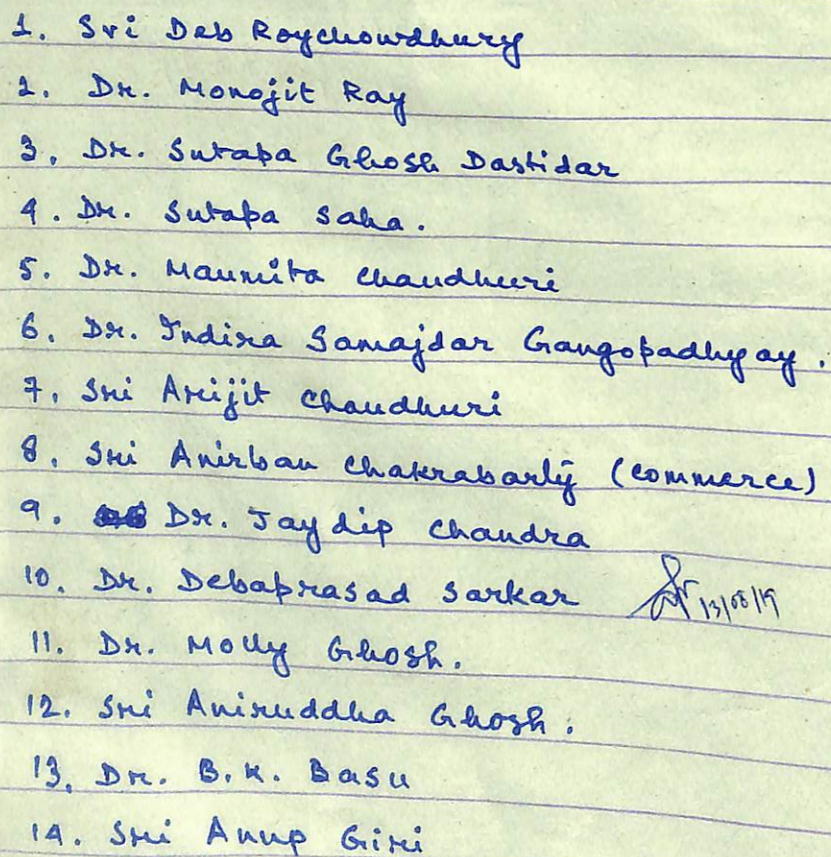 1. Sri Deb Roychowdhury
2. Dr. Monojit Ray
3. Dr. Sutapa Ghosh Dastidar
4. Dr. Sutapa Saha.
5. Dr. Maumita Chaudhuri
6. Dr. Indira Samajdar Gangopadhyay.
7. Sri Arijit Chaudhuri
8. Sri Anirban Chakrabarty (Commerce)
9. Dr. Jaydip Chandra
10. Dr. Debaprasad Sarkar 13/08/19
11. Dr. Molly Ghosh.
12. Sri Aniruddha Ghosh.
13. Dr. B.K. Basu
14. Sri Anup Giri